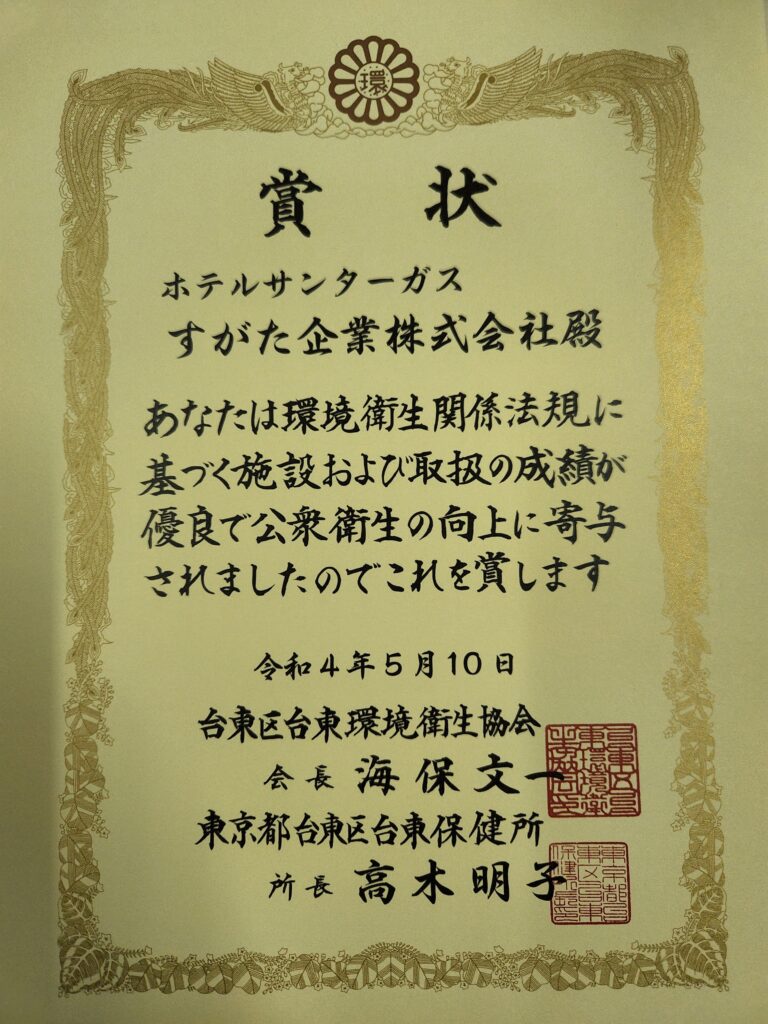 環
賞状
ホテルサンターガス
すがた企業株式会社殿
あなたは環境衛生関係法規に
基づく施設および取扱の成績が
優良で公衆衛生の向上に寄与
されましたのでこれを賞します
令和4年5月10日
台東区台東環境衛生協会
会長 海保文一
東京都台東区台東保健所
所長 高木明子